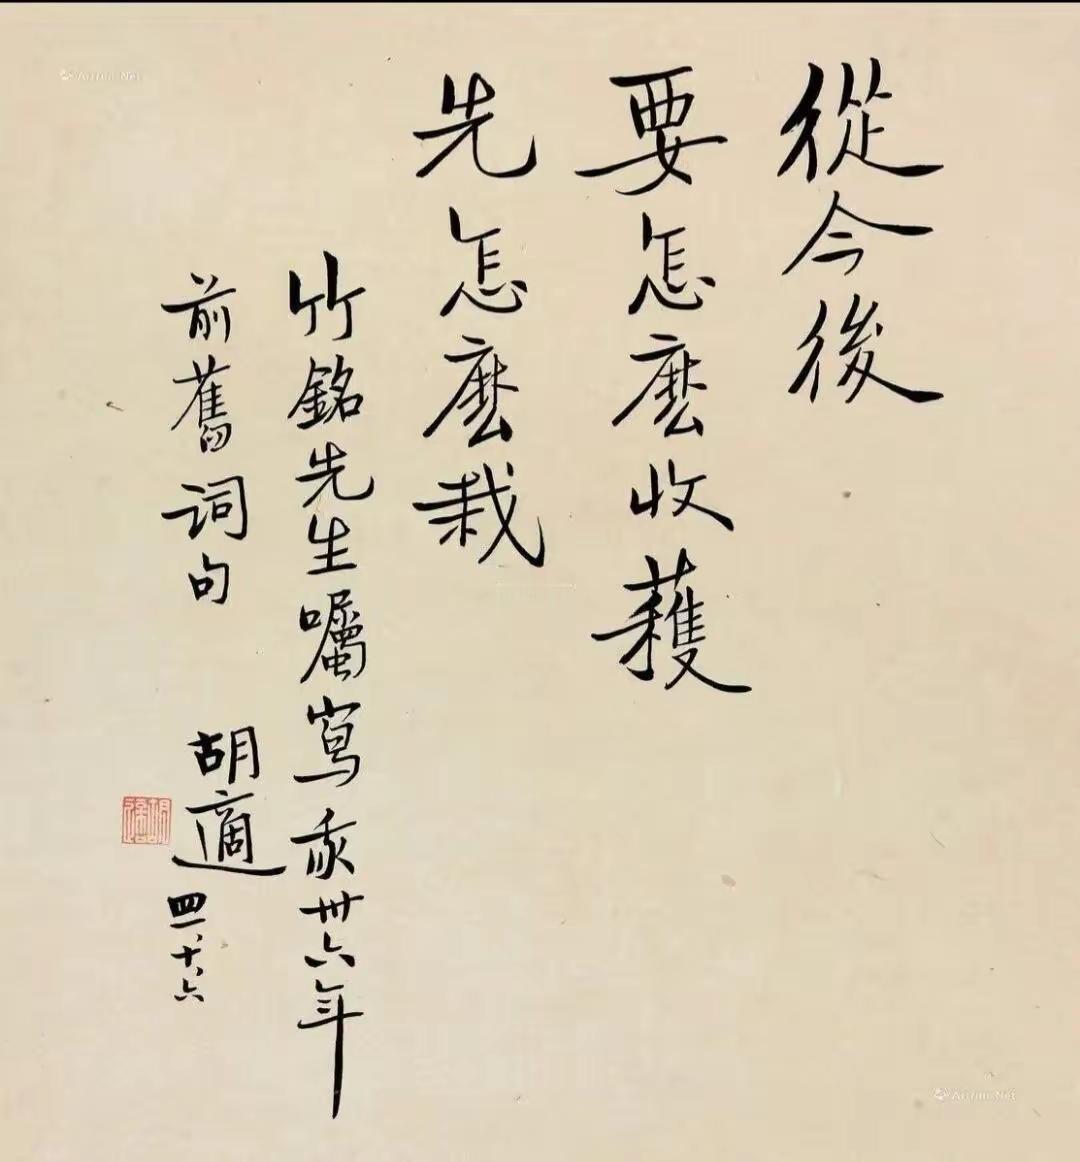 從今後
要怎麼收穫
先怎麼栽
竹銘先生囑寫我卅六年
前舊詞句
胡適
四一、十、六
Artron.Net
Artron.Net